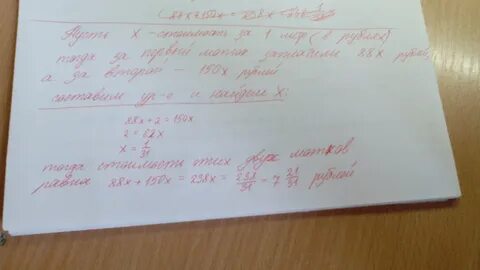 Пусть X - стоимость за 1 метр (в рублях)
тогда за первый моток заплатили 88x рублей,
а за второй — 150x рублей
составим ур-е и найдем X:
88x + 2 = 150x
2 = 62x
x = 1/31
тогда стоимость этих двух мотков
равна 88x + 150x = 238x = 238/31 = 7 21/31 рублей